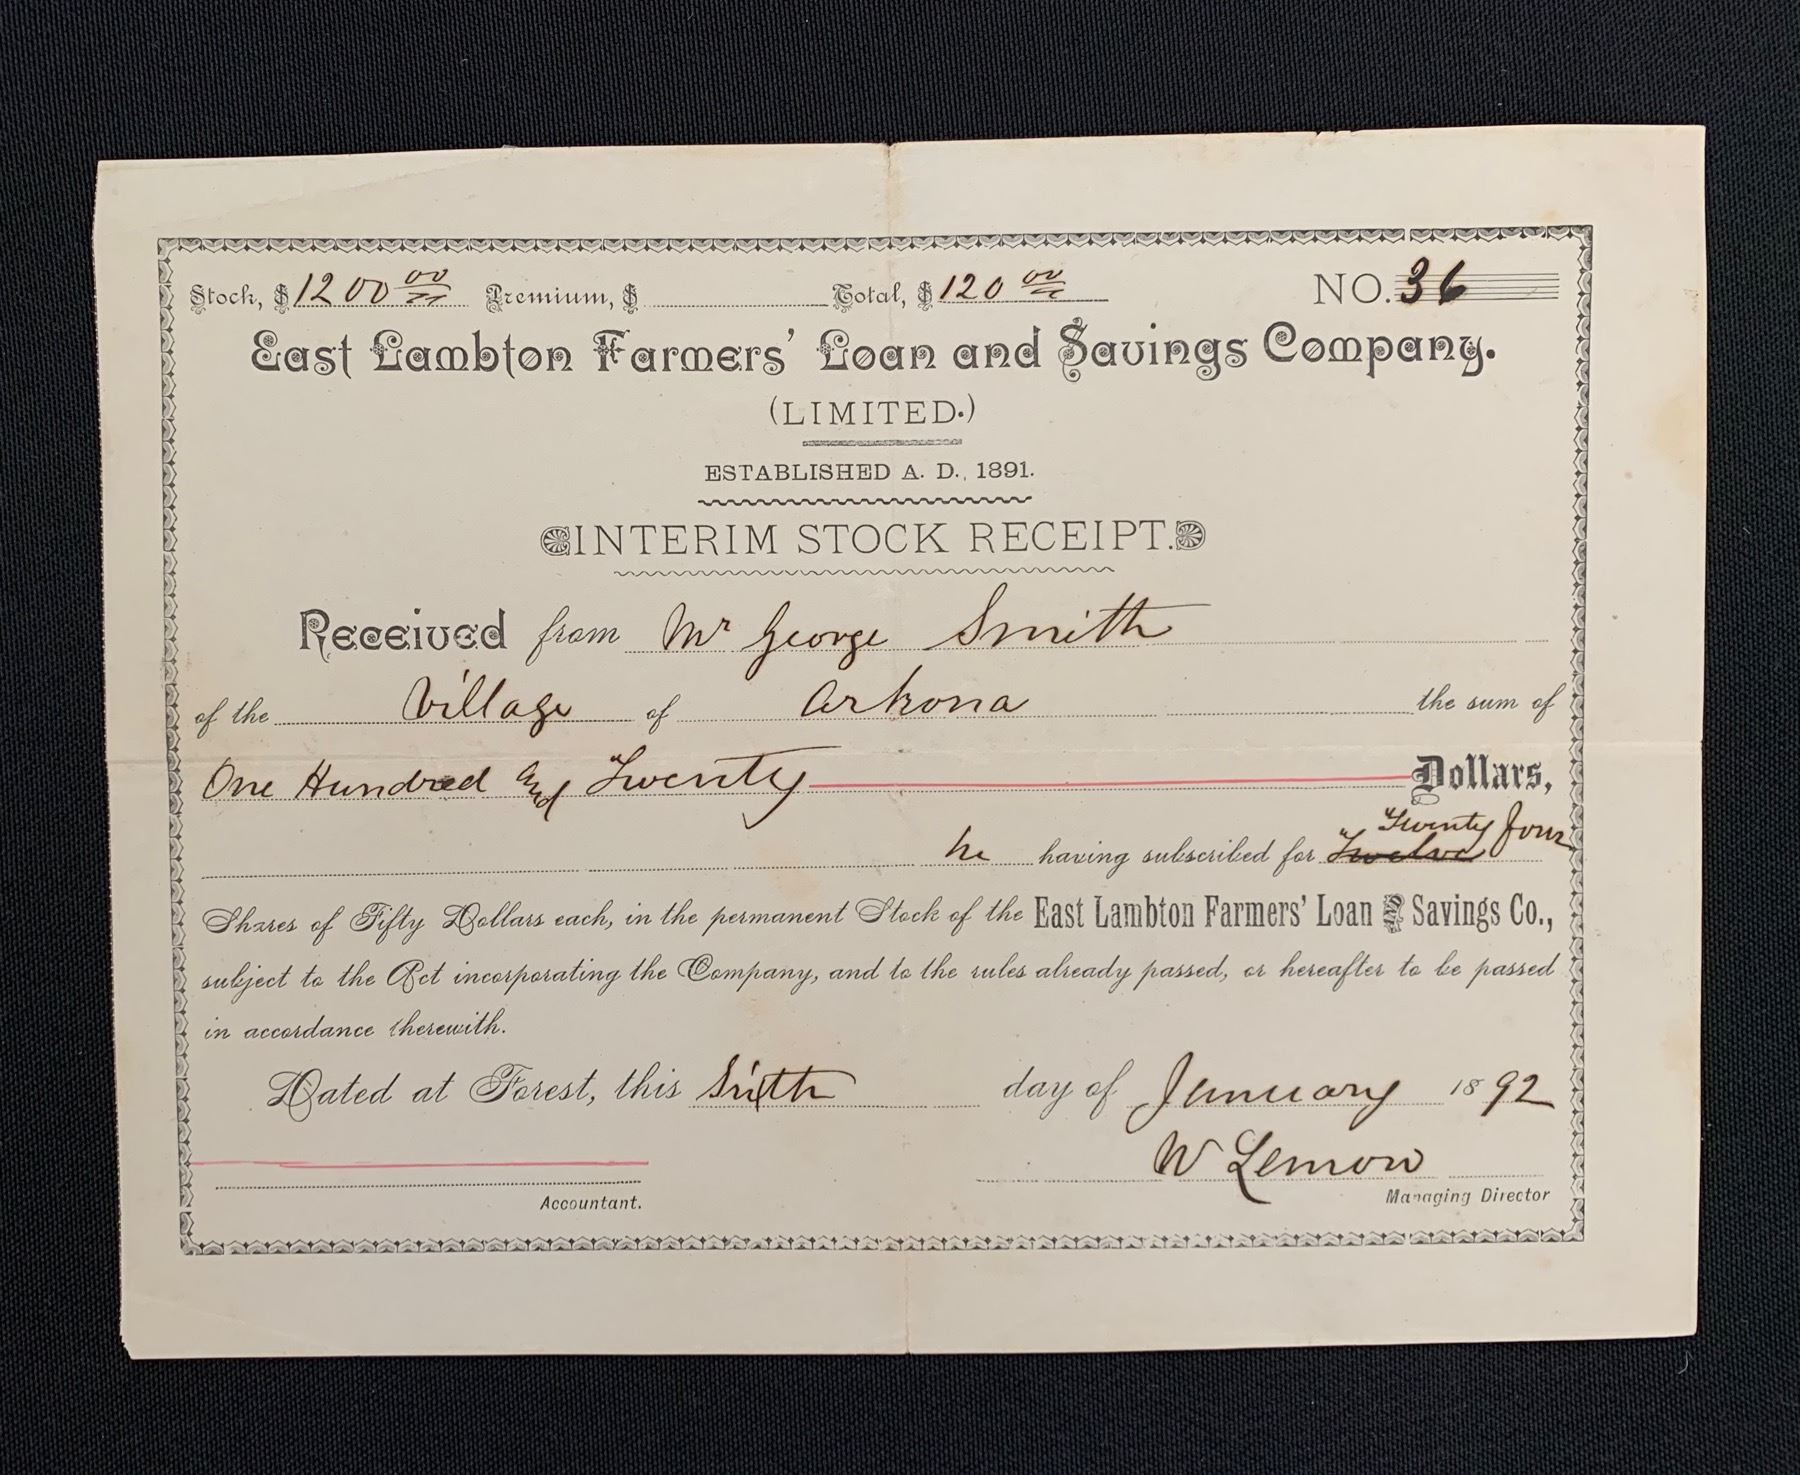 Stock, $ 1200 00 Premium, $ Total, $ 120 00 NO. 36
East Lambton Farmers' Loan and Savings Company.
(LIMITED.)
ESTABLISHED A. D., 1891.
INTERIM STOCK RECEIPT.
Received from Mr George Smith
of the Village of Arkona the sum of
One Hundred and Twenty Dollars,
he having subscribed for Twelve Twenty Four
Shares of Fifty Dollars each, in the permanent Stock of the East Lambton Farmers' Loan and Savings Co.,
subject to the Act incorporating the Company, and to the rules already passed, or hereafter to be passed
in accordance therewith.
Dated at Forest, this Sixth day of January 1892
W Lemon
Accountant. Managing Director